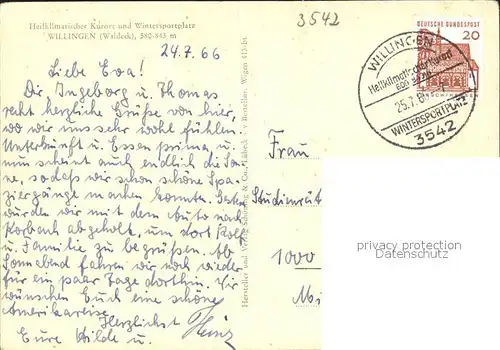 Heilklimatischer Kurort und Wintersportplatz
WILLINGEN (Waldeck), 580-843 m
3542
24.7.66
Liebe Eva!
Dir, Ingeborg u. Thomas
recht herzliche Grüße von hier,
wo wir uns sehr wohl fühlen.
Unterkunft u. Essen prima u.
nun scheint auch endlich die Son-
ne, sodaß wir schon schöne Spa-
ziergänge machen konnten. Gestern
wurden wir mit dem Auto nach
Korbach abgeholt, um dort Rolf
u. Familie zu begrüßen. Ab
Sonnabend fahren wir noch wieder
für ein paar Tage dorthin. Wir
wünschen Euch eine schöne
Amerikareise.
Herzlichst
Eure Hilde u. Heinz
Hersteller und Verlag Schöning & Co., Lübeck
Bei Bestellen: Wigen 415
DEUTSCHE BUNDESPOST
20
WILLINGEN
Heilklimat. Kurort
25.7.6
WINTERSPORTPLATZ
3542
Frau
Studienrät
1000
Mi
privacy protection
Datenschutz